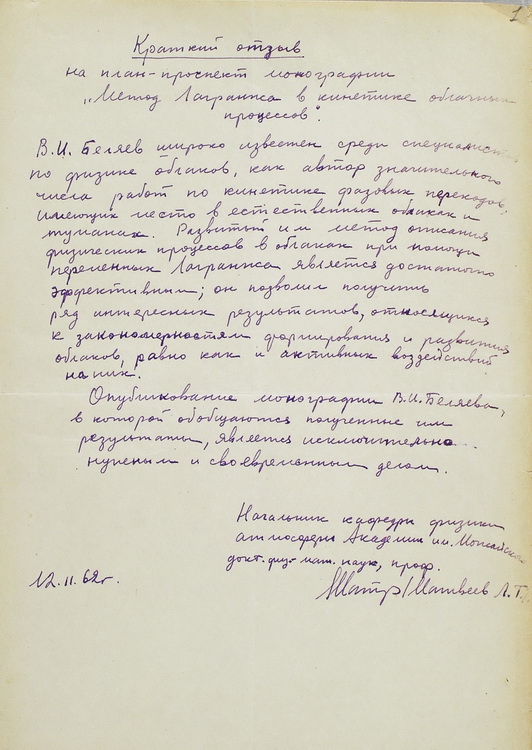 1
Краткий отзыв
на план-проспект монографии
„Метод Лагранжа в кинетике облачных
процессов".
В.И. Беляев широко известен среди специалистов
по физике облаков, как автор значительного
числа работ по кинетике фазовых переходов,
имеющих место в естественных облаках и
туманах. Развитый им метод описания
физических процессов в облаках при помощи
переменных Лагранжа является достаточно
эффективным; он позволил получить
ряд интересных результатов, относящихся
к закономерностям формирования и развития
облаков, равно как и активных воздействий
на них.
Опубликование монографии В.И. Беляева,
в которой обобщаются полученные им
результаты, является исключительно
нужным и своевременным делом.
Начальник кафедры физики
атмосферы Академии им. Можайского
докт. физ-мат. наук, проф.
12.II.62г.
/Матвеев Л.Т./